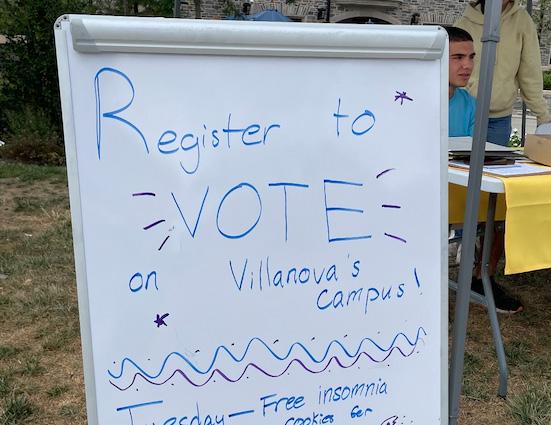 Register to
VOTE
on Villanova's
campus!
Tuesday — Free insomnia
cookies for